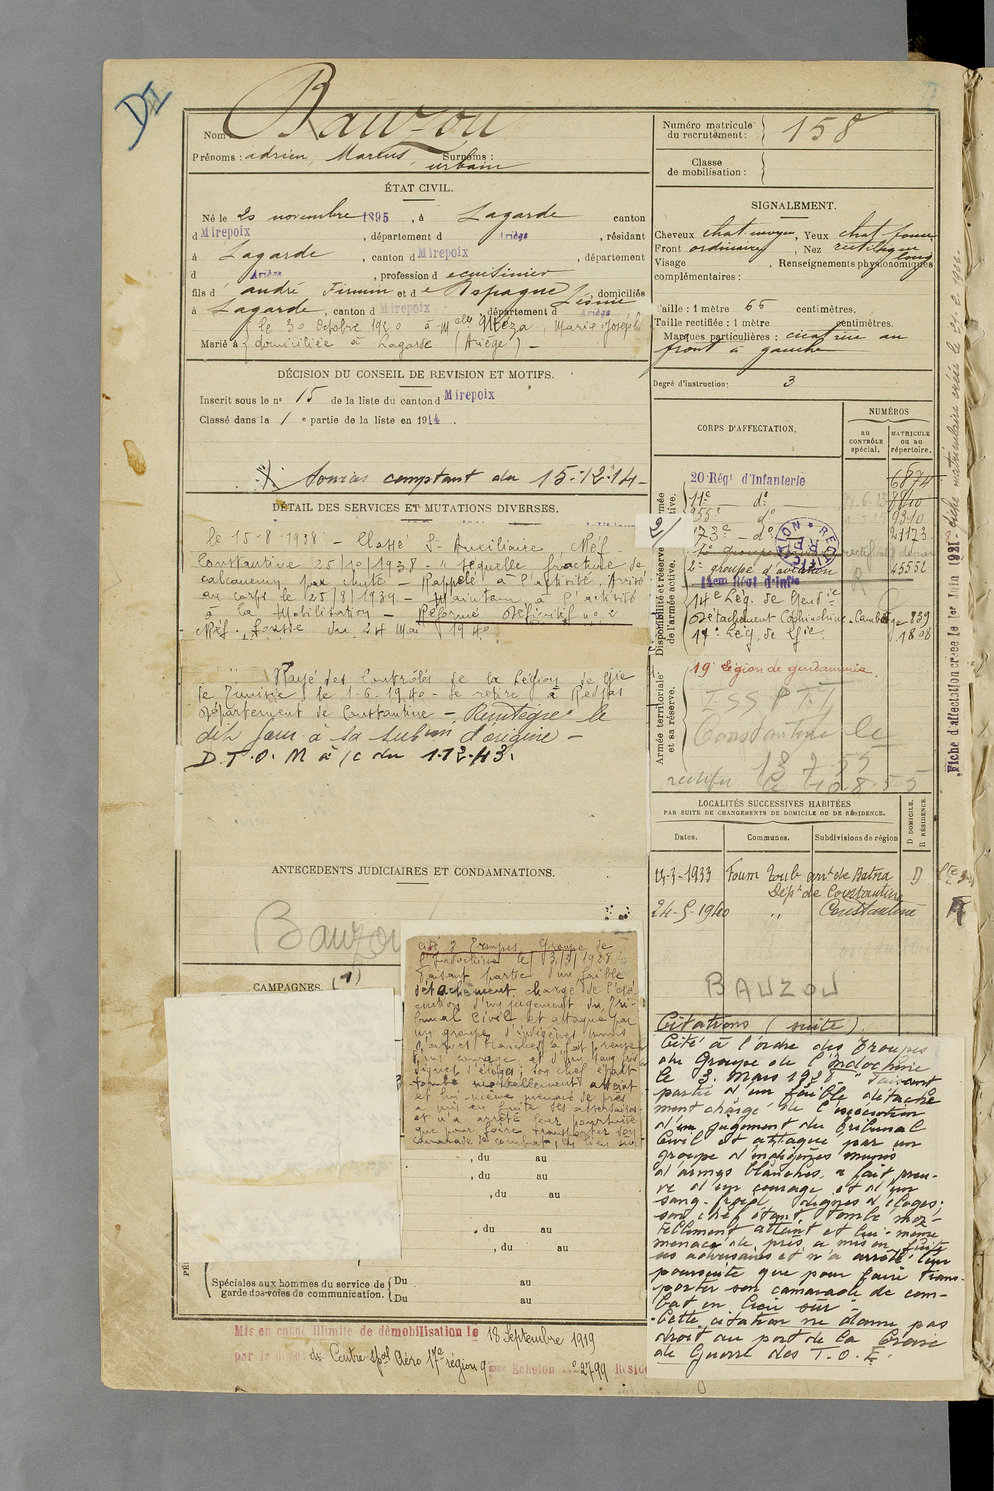 DI
Nom : Bauzou
Prénoms : adrien, Marius, Surnoms :
urbain
ÉTAT CIVIL.
Né le 20 novembre 1895, à Lagarde canton
d Mirepoix, département d Ariège, résidant
à Lagarde, canton d Mirepoix, département
d Ariège, profession d
fils d' andré Firmin et d e Espagne Léonie, domiciliés
à Lagarde, canton d Mirepoix, département d Ariège
le 30 Octobre 1920 à Melle Meza, Marie Joséph
Marié à domiciliée à Lagarde (Ariège) -
DÉCISION DU CONSEIL DE REVISION ET MOTIFS.
Inscrit sous le n° 15 de la liste du canton d Mirepoix
Classé dans la 1 e partie de la liste en 1914.
Services comptant du 15-12-14-
DÉTAIL DES SERVICES ET MUTATIONS DIVERSES.
le 15-8-1938 - Classé Sce Auxiliaire, Réf.
Constantine 25/10/1938 - "séquelle fracture de
calcaneum par chute - Rappelé à l'activité, Arrivé
au corps le 25/8/1939 - Maintenu à l'activité
à la Mobilisation - Réformé Définitif n° 2
Réf. Sousse du 24 Mai 1940
Rayé des Contrôles de la Légion de Gie
de Tunisie le 1-6-1940 - Se retire à Redjas
Département de Constantine - Réintégré le
dit jour à sa subon d'origine -
D.T.O.M à /c du 1-12-43.
ANTECEDENTS JUDICIAIRES ET CONDAMNATIONS.
Bauzou
CAMPAGNES. (1)
Cité à Troupes Groupe de
l'Indochine le 3/3/1928
Faisant partie d'un faible
détachement chargé de l'exé
cution d'un jugement du Tri-
bunal Civil et attaqué par
un groupe d'indigènes munis
d'armes blanches a fait preuve
d'un courage et d'un sang froid
dignes d'éloges; son chef étant
tombé mortellement atteint
et lui-même menacé de près
a mis en fuite ses adversaires
et n'a arrêté leur poursuite
que pour faire transporter son
camarade de combat en lieu sûr
, du au
, du au
, du au
, du au
, du au
Spéciales aux hommes du service de
garde des voies de communication.
Du au
Du au
Mis en congé illimité de démobilisation le 18 Septembre 1919
par le dépôt du Centre Spal Aéro 17e région 9 ème Echelon n° 2799
Numéro matricule
du recrutement : 158
Classe
de mobilisation :
SIGNALEMENT.
Cheveux chat. moyen, Yeux chat. foncé
Front ordinaire, Nez rectiligne
long
Visage , Renseignements physionomiques
complémentaires :
Taille : 1 mètre 65 centimètres.
Taille rectifiée : 1 mètre centimètres.
Marques particulières : cicatrice au
front à gauche
Degré d'instruction : 3
CORPS D'AFFECTATION.
NUMÉROS
au
CONTRÔLE
spécial.
MATRICULE
ou au
répertoire.
2/
Disponibilité et réserve
de l'armée active.
20 Régt d'Infanterie
11e - do
do 9310
173e - do 21173
2e groupe d'aviation 45552
14em Régt d'Infie
14e Lég. de Gend.ie
Détachement Cochinchine-Cambe 839
17e Lég. de Gie. 1808
RECTIFICATION
Armée territoriale
et sa réserve.
19e Légion de gendarmerie.
Constantine le
18 7-55
rectifié le 10-8-55
LOCALITÉS SUCCESSIVES HABITÉES
PAR SUITE DE CHANGEMENTS DE DOMICILE OU DE RÉSIDENCE.
Dates. Communes. Subdivisions de région D DOMICILE. R RÉSIDENCE.
1933 Foum Toub arrt de Batna D
Dépt de Constantine
24-5-1940 " Constantine R
BAUZOU
Citations (suite).
Cité à l'ordre des Troupes
du Groupe de l'Indochine
le 3 Mars 1928 - "Faisant
partie d'un faible détache
ment chargé de l'exécution
d'un jugement du Tribunal
Civil et attaqué par un
groupe d'indigènes munis
d'armes blanches, a fait preu-
ve d'un courage et d'un
sang-froid, dignes d'éloges;
son chef étant tombé mor-
tellement atteint et lui-même
menacé de près a mis en fuite
ses adversaires et n'a arrêté leur
poursuite que pour faire trans-
porter son camarade de com-
bat en lieu sûr -
Cette citation ne donne pas
droit au port de la Croix
de Guerre des T.O.E.
"Fiche d'affectation créée le 1er Juin 1921"